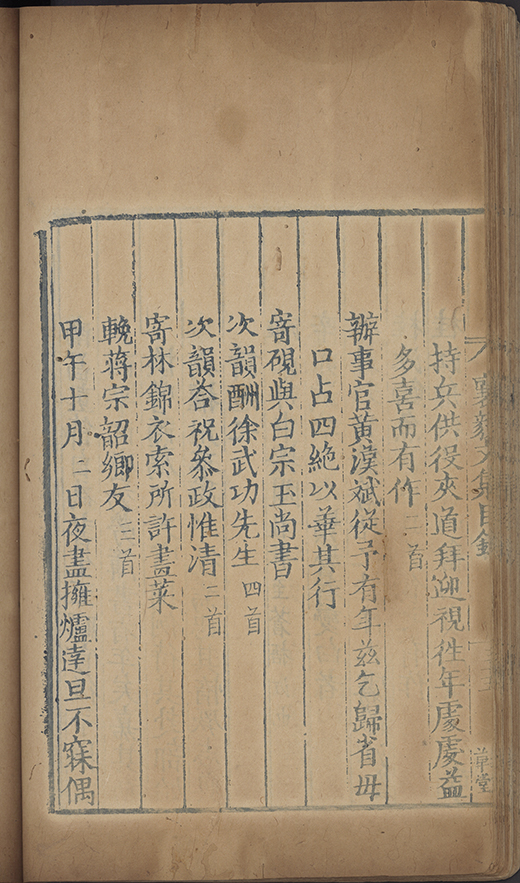 襄毅文集目錄
草堂
持兵供役夾道拜迎視徃年處處益
多喜而有作二首
辦事官黃漢斌從予有年兹乞歸省毋
口占四絶以華其行
寄硯與白宗玉尚書
次韻酬徐武功先生四首
次韻荅祝叅政惟清二首
寄林錦衣索所許畫菜
輓蒋宗韶卿友三首
甲午十月二日夜盡擁爐達旦不寐偶